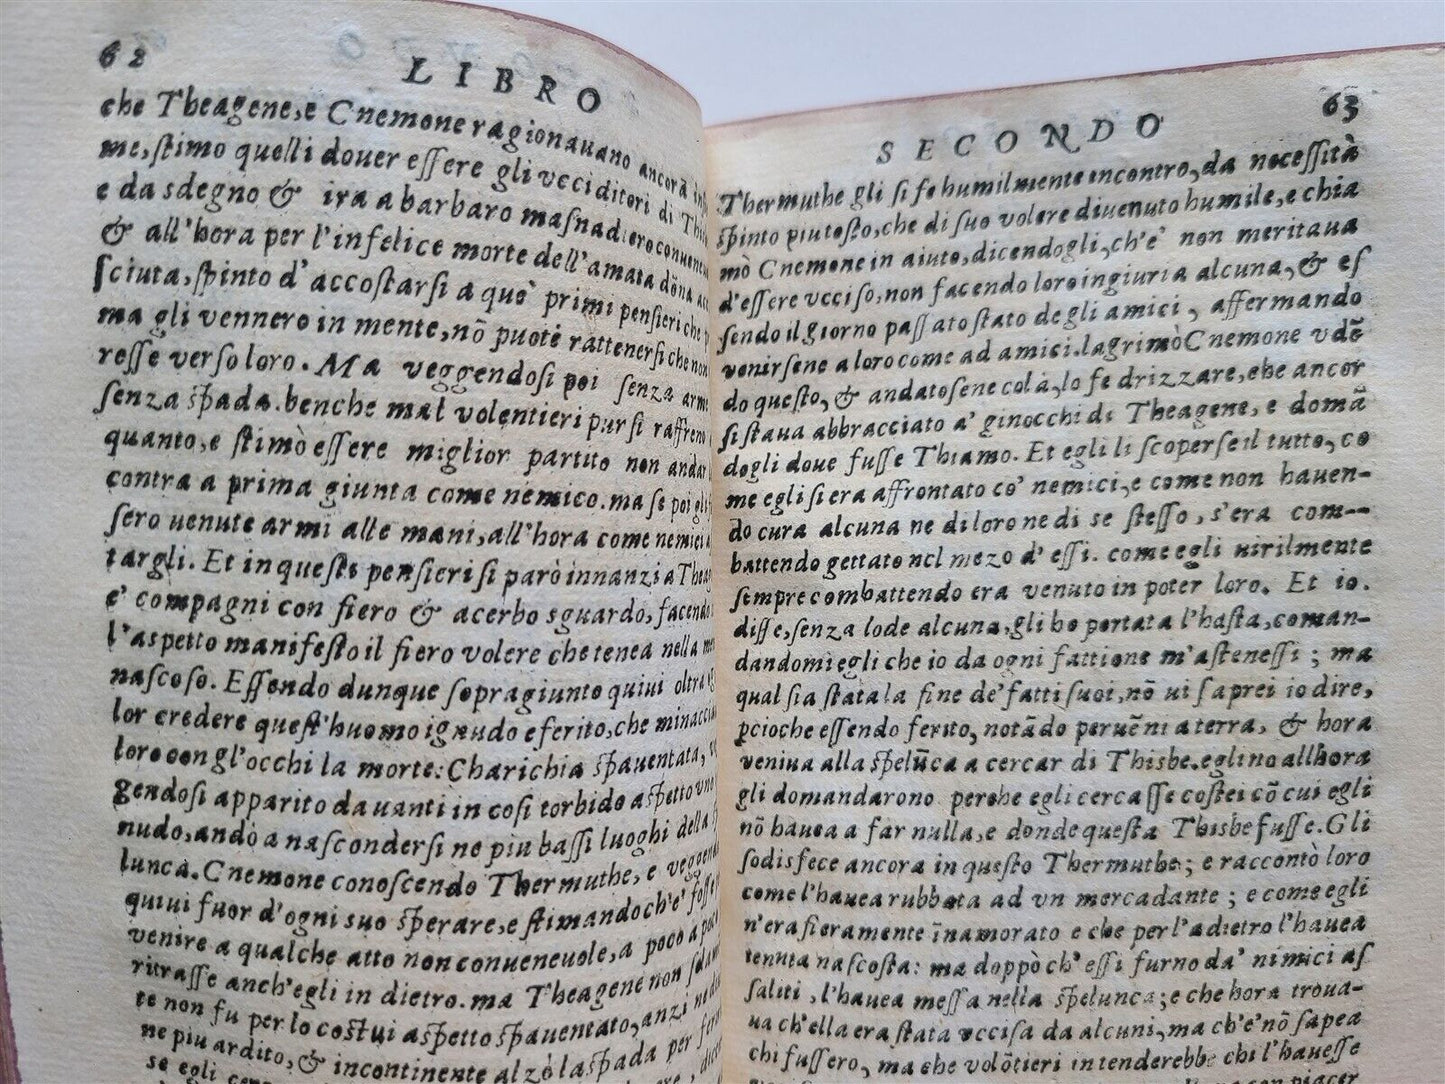 62
LIBRO
che Theagene, e Cnemone ragionauano ancora
me, stimo quelli douer essere gli ucciditori di
e da sdegno & ira a barbaro masnadiero
& all'hora per l'infelice morte dell'amata dōna
sciuta, spinto d'accostarsi a què primi pensieri che
ma gli vennero in mente, nō puotè rattenersi che non
resse verso loro. Ma veggendosi poi senza arme
senza spada. benche mal volentieri pur si raffrenò
quanto, e stimò essere miglior partito non andar
contra a prima giunta come nemico. ma se poi gli
sero uenute armi alle mani, all'hora come nemici
targli. Et in questi pensieri si parò innanzi a
e' compagni con fiero & acerbo sguardo, facendo
l'aspetto manifesto il fiero volere che tenea nella
nascoso. Essendo dunque sopragiunto quiui oltra
lor credere quest'huomo ignudo e ferito, che
loro con gl'occhi la morte: Charichia spauentata,
gendosi apparito dauanti in cosi torbido aspetto vno
nudo, andò a nascondersi ne piu bassi luoghi della
luncà. Cnemone conoscendo Thermuthe, e
quiui fuor d'ogni suo sperare, e stimando ch'e' fosse
venire a qualche atto non conueneuole, a poco a
ritrasse anch'egli in dietro. ma Theagene non
te non fu per lo costui aspetto spauentato, anzi
ne piu ardito, & incontinente alzò la spada per
se egli
63
SECONDO
Thermuthe gli si fe humilmente encontro, da necessità
spinto piutosto, che di suo volere diuenuto humile, e chia
mò Cnemone in aiuto, dicendogli, ch'e' non meritaua
d'essere vcciso, non facendo loro ingiuria alcuna, & es
sendo il giorno passato stato de gli amici, affermando
venirsene a loro come ad amici. lagrimò Cnemone vdē
do questo, & andatosene colà, lo fe drizzare, che ancor
si staua abbracciato a' ginocchi di Theagene, e domā
dogli doue fusse Thiamo. Et egli li scoperse il tutto, co
me egli si era affrontato co' nemici, e come non hauen-
do cura alcuna ne di loro ne di se stesso, s'era com--
battendo gettato nel mezo d'essi. come egli uirilmente
sempre combattendo era venuto in poter loro. Et io.
disse, senza lode alcuna, gli ho portata l'hasta, coman-
dandomi egli che io da ogni fattione m'astenessi; ma
qual sia stata la fine de' fatti suoi, nō ui saprei io dire,
pcioche essendo ferito, notādo peruēni a terra, & hora
veniua alla spelūca a cercar di Thisbe. eglino allhora
gli domandarono perche egli cercasse costei cō cui egli
nō hauea a far nulla, e donde questa Thisbe fusse. Gli
sodisfece ancora in questo Thermuthe; e raccontò loro
come l'hauea rubbata ad vn mercadante; e come egli
n'era fieramente inamorato e che per l'adietro l'hauea
tenuta nascosta: ma doppò ch'essi furno da' nimici as
saliti, l'hauea messa nella spelunca; e che hora troua-
ua ch'ella era stata vccisa da alcuni, ma ch'e' nō sapea
chi fussero, ma che volōtieri intenderebbe chi l'hauesse